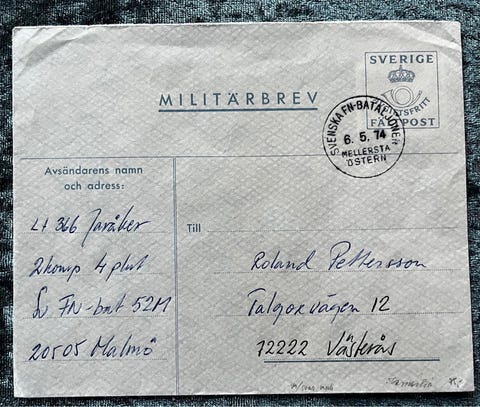 SVERIGE
PORTOFRITT
FÄLTPOST
MILITÄRBREV
SVENSKA FN-BATALJONEN
6. 5. 74
MELLERSTA
ÖSTERN
Avsändarens namn
och adress:
Lt 366 Jaråker
2 komp 4 plut
Sv FN-bat 52M
20505 Malmö
Till
Roland Pettersson
Talgoxvägen 12
72222 Västerås